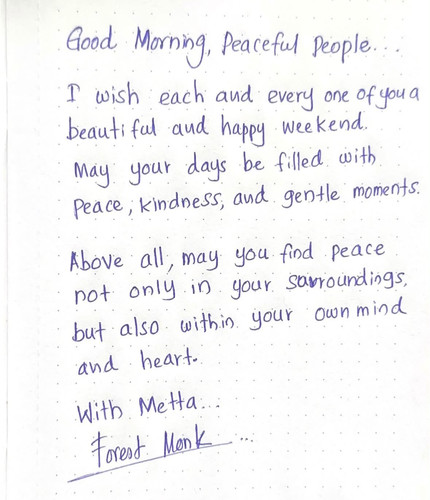 Good Morning, Peaceful People...
I wish each and every one of you a
beautiful and happy weekend.
May your days be filled with
Peace, kindness, and gentle moments.
Above all, may you find peace
not only in your surroundings,
but also within your own mind
and heart.
With Metta...
Forest Monk ...